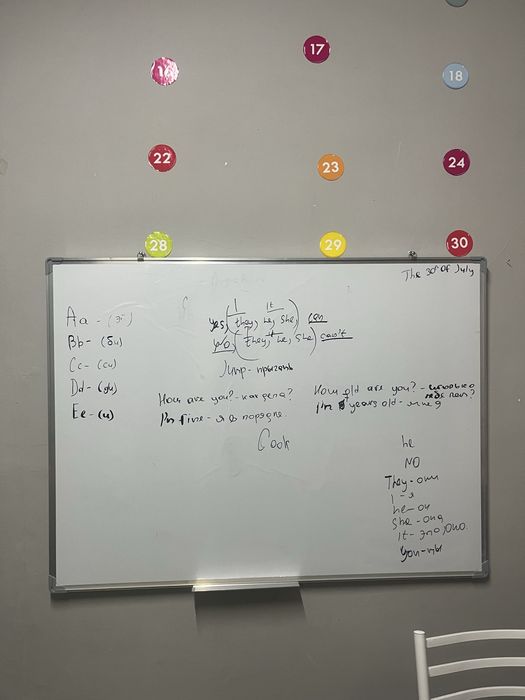 16
17
18
22
23
24
28
29
30
The 30th of July
Aa - (эй)
Bb - (би)
Cc - (си)
Dd - (ди)
Ee - (и)
I it
yes, (they, he, she) can
no, (they, he, she) can't
Jump - прыгать
How are you? - как дела?
I'm fine - я в порядке.
How old are you? - сколько
тебе лет?
I'm years old - мне
Cook
he
NO
They - они
I - я
he - он
she - она
it - это, оно.
You - ты